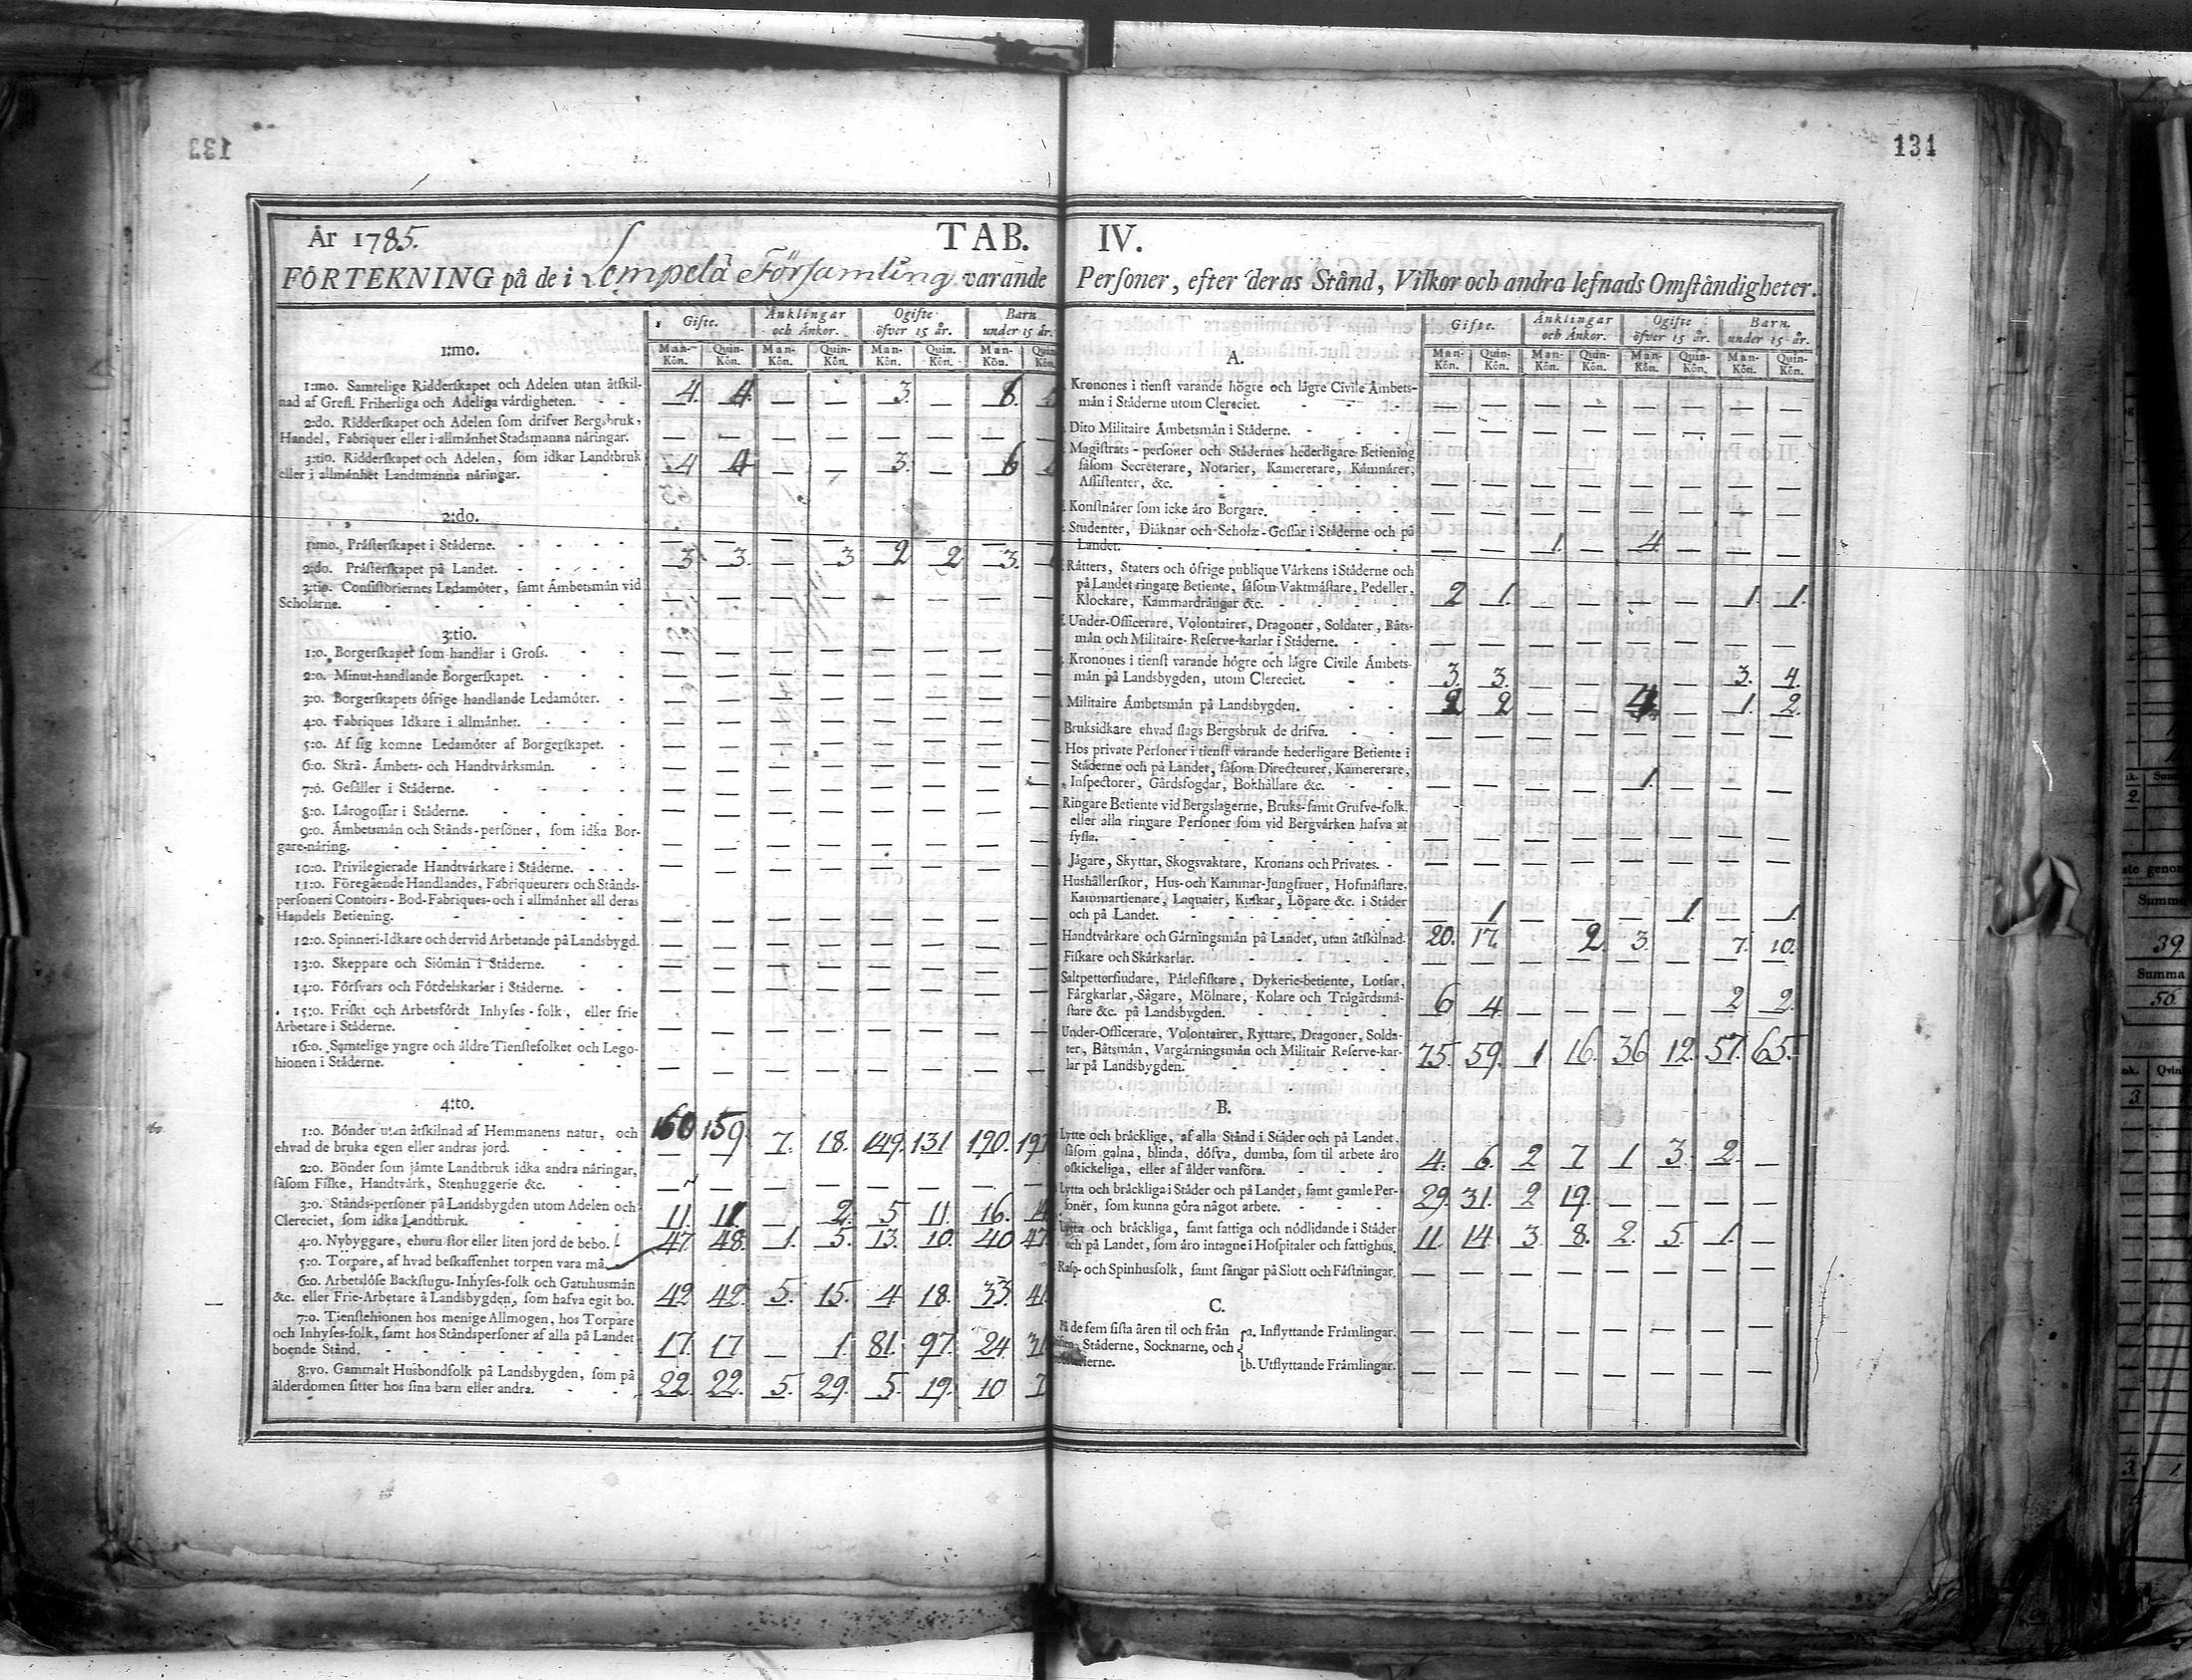 131
År 1785. TAB. IV.
FÖRTEKNING på de i Lempelä Församling varande Personer, efter deras Stånd, Vilkor och andra lefnads Omståndigheter.
Gifte. Änklingar och Änkor. Ogifte öfver 15 år. Barn under 15 år.
Man-Kön. Quin-Kön. Man-Kön. Quin-Kön. Man-Kön. Quin-Kön. Man-Kön. Quin-Kön.
1:mo.
1:mo. Samtelige Ridderskapet och Adelen utan åtskil-
nad af Grefl. Friherliga och Adeliga vårdigheten. - - 4. 4. — — 3. — 6.
2:do. Ridderskapet och Adelen som drifver Bergsbruk,
Handel, Fabriquer eller i allmånhet Stadsmanna nåringar. — — — — — — —
3:tio. Ridderskapet och Adelen, som idkar Landtbruk
eller i allmånhet Landtmanna nåringar. - - 4 4 — — 3. — 6
2:do.
1:mo. Pråsterskapet i Ståderne. - - - - — — — — — — —
2:do. Pråsterskapet på Landet. - - - - 3. 3. — 3 2 2 3.
3:tio. Consistoriernes Ledamöter, samt Åmbetsmån vid
Scholarne. - - - - — — — — — — —
3:tio.
1:o. Borgerskapet som handlar i Gross. - - — — — — — — —
2:o. Minut-handlande Borgerskapet. - - — — — — — — —
3:o. Borgerskapets öfrige handlande Ledamöter. - — — — — — — —
4:o. Fabriques Idkare i allmånhet. - - — — — — — — —
5:o. Af sig komne Ledamöter af Borgerskapet. - — — — — — — —
6:o. Skrå- Åmbets- och Handtvårksmån. - - — — — — — — —
7:o. Gesåller i Ståderne. - - - - — — — — — — —
8:o. Lårogossar i Ståderne. - - - - — — — — — — —
9:o. Åmbetsmån och Stånds-personer, som idka Bor-
gare-nåring. - - - - — — — — — — —
10:o. Privilegierade Handtvårkare i Ståderne. - - — — — — — — —
11:o. Föregående Handlandes, Fabriqueurers och Stånds-
personers Contoirs- Bod-Fabriques- och i allmånhet all deras
Handels Betiening. - - - - — — — — — — —
12:o. Spinneri-Idkare och dervid Arbetande på Landsbygd. — — — — — — —
13:o. Skeppare och Siömån i Ståderne. - - — — — — — — —
14:o. Försvars och Fördelskarlar i Ståderne. - - — — — — — — —
15:o. Friskt och Arbetsfördt Inhyses-folk, eller frie
Arbetare i Ståderne. - - - - — — — — — — —
16:o. Samtelige yngre och åldre Tienstefolket och Lego-
hionen i Ståderne. - - - - — — — — — — —
4:to.
1:o. Bönder utan åtskilnad af Hemmanens natur, och
ehvad de bruka egen eller andras jord. - - 160 159. 7. 18. 149. 131 190.
2:o. Bönder som jåmte Landtbruk idka andra nåringar,
såsom Fiske, Handtvårk, Stenhuggerie &c. - - — — — — — — —
3:o. Stånds-personer på Landsbygden utom Adelen och
Clereciet, som idka Landtbruk. - - - 11. 11. — 2. 5 11. 16.
4:o. Nybyggare, ehuru stor eller liten jord de bebo. 47. 48. 1. 3. 13. 10. 40
5:o. Torpare, af hvad beskaffenhet torpen vara må.
6:o. Arbetslöse Backstugu-Inhyses-folk och Gatuhusmån
&c. eller Frie-Arbetare å Landsbygden, som hafva egit bo. 42 42. 5. 15. 4 18. 33.
7:o. Tienstehionen hos menige Allmogen, hos Torpare
och Inhyses-folk, samt hos Ståndspersoner af alla på Landet
boende Stånd. - - - - 17. 17 — 1. 81. 97. 24.
8:vo. Gammalt Husbondfolk på Landsbygden, som på
ålderdomen sitter hos sina barn eller andra. - - 22. 22. 5. 29. 5. 19. 10
Gifte. Änklingar och Änkor. Ogifte öfver 15 år. Barn under 15 år.
Man-Kön. Quin-Kön. Man-Kön. Quin-Kön. Man-Kön. Quin-Kön. Man-Kön. Quin-Kön.
A.
Kronones i tienst varande högre och lågre Civile Åmbets-
mån i Ståderne utom Clereciet. - - - — — — — — — — —
Dito Militaire Åmbetsmån i Ståderne. - - — — — — — — — —
Magistrats-personer och Stådernes hederligare Betiening
såsom Secreterare, Notarier, Kamererare, Kåmnårer,
Assistenter, &c. - - - - — — — — — — — —
Konstnårer som icke åro Borgare. - - - — — — — — — — —
Studenter, Diåknar och Scholæ-Gossar i Ståderne och på
Landet. - - - - — — 1. — 4. — — —
Råtters, Staters och öfrige publique Vårkens i Ståderne och
på Landet ringare Betiente, såsom Vaktmåstare, Pedeller,
Klockare, Kammardrångar &c. - - 2 1. — — — — 1. 1.
Under-Officerare, Volontairer, Dragoner, Soldater, Båts-
mån och Militaire-Reserve-karlar i Ståderne. - - — — — — — — — —
Kronones i tienst varande högre och lågre Civile Åmbets-
mån på Landsbygden, utom Clereciet. - - 3. 3. — — — — 3. 4.
Militaire Åmbetsmån på Landsbygden. - - 2 2 — — 4 — 1. 2.
Bruksidkare ehvad slags Bergsbruk de drifva. - - — — — — — — — —
Hos private Personer i tienst varande hederligare Betiente i
Ståderne och på Landet, såsom Directeurer, Kamererare,
Inspectorer, Gårdsfogdar, Bokhållare &c. - - — — — — 1. — — —
Ringare Betiente vid Bergslagerne, Bruks- samt Grufve-folk.
eller alla ringare Personer som vid Bergvårken hafva at
sysla. - - - - — — — — — — — —
Jågare, Skyttar, Skogsvaktare, Kronans och Privates. - — — — — — — — —
Hushållerskor, Hus- och Kammar-Jungfruer, Hofmåstare,
Kammartienare, Laquaier, Kuskar, Löpare &c. i Ståder
och på Landet. - - - - — 1 — — — 1. — 1.
Handtvårkare och Gårningsmån på Landet, utan åtskilnad. 20. 17. 2. 3. 7. 10.
Fiskare och Skårkarlar. - - - - — — — — — — — —
Saltpettersiudare, Pårlefiskare, Dykerie-betiente, Lotsar,
Fårgkarlar, Sågare, Mölnare, Kolare och Trågårdsmå-
stare &c. på Landsbygden. - - - 6 4 — — — — 2 2.
Under-Officerare, Volontairer, Ryttare, Dragoner, Solda-
ter, Båtsmån, Vargårningsmån och Militair Reserve-kar-
lar på Landsbygden. - - - 75. 59. 1. 16. 36 12. 57. 65.
B.
Lytte och bråcklige, af alla Stånd i Ståder och på Landet,
såsom galna, blinda, döfva, dumba, som til arbete åro
oskickeliga, eller af ålder vanföra. - - 4. 6. 2 7 1 3. 2. —
Lytta och bråckliga i Ståder och på Landet, samt gamle Per-
soner, som kunna göra något arbete. - - 29. 31. 2 19. — — — —
Lytta och bråckliga, samt fattiga och nödlidande i Ståder
och på Landet, som åro intagne i Hospitaler och fattighus. 11. 14 3. 8. 2. 5. 1. —
Rasp- och Spinhusfolk, samt fångar på Slott och Fåstningar. — — — — — — — —
C.
På de fem sista åren til och från a. Inflyttande Fråmlingar. — — — — — — — —
Ståderne, Socknarne, och
b. Utflyttande Fråmlingar. — — — — — — — —